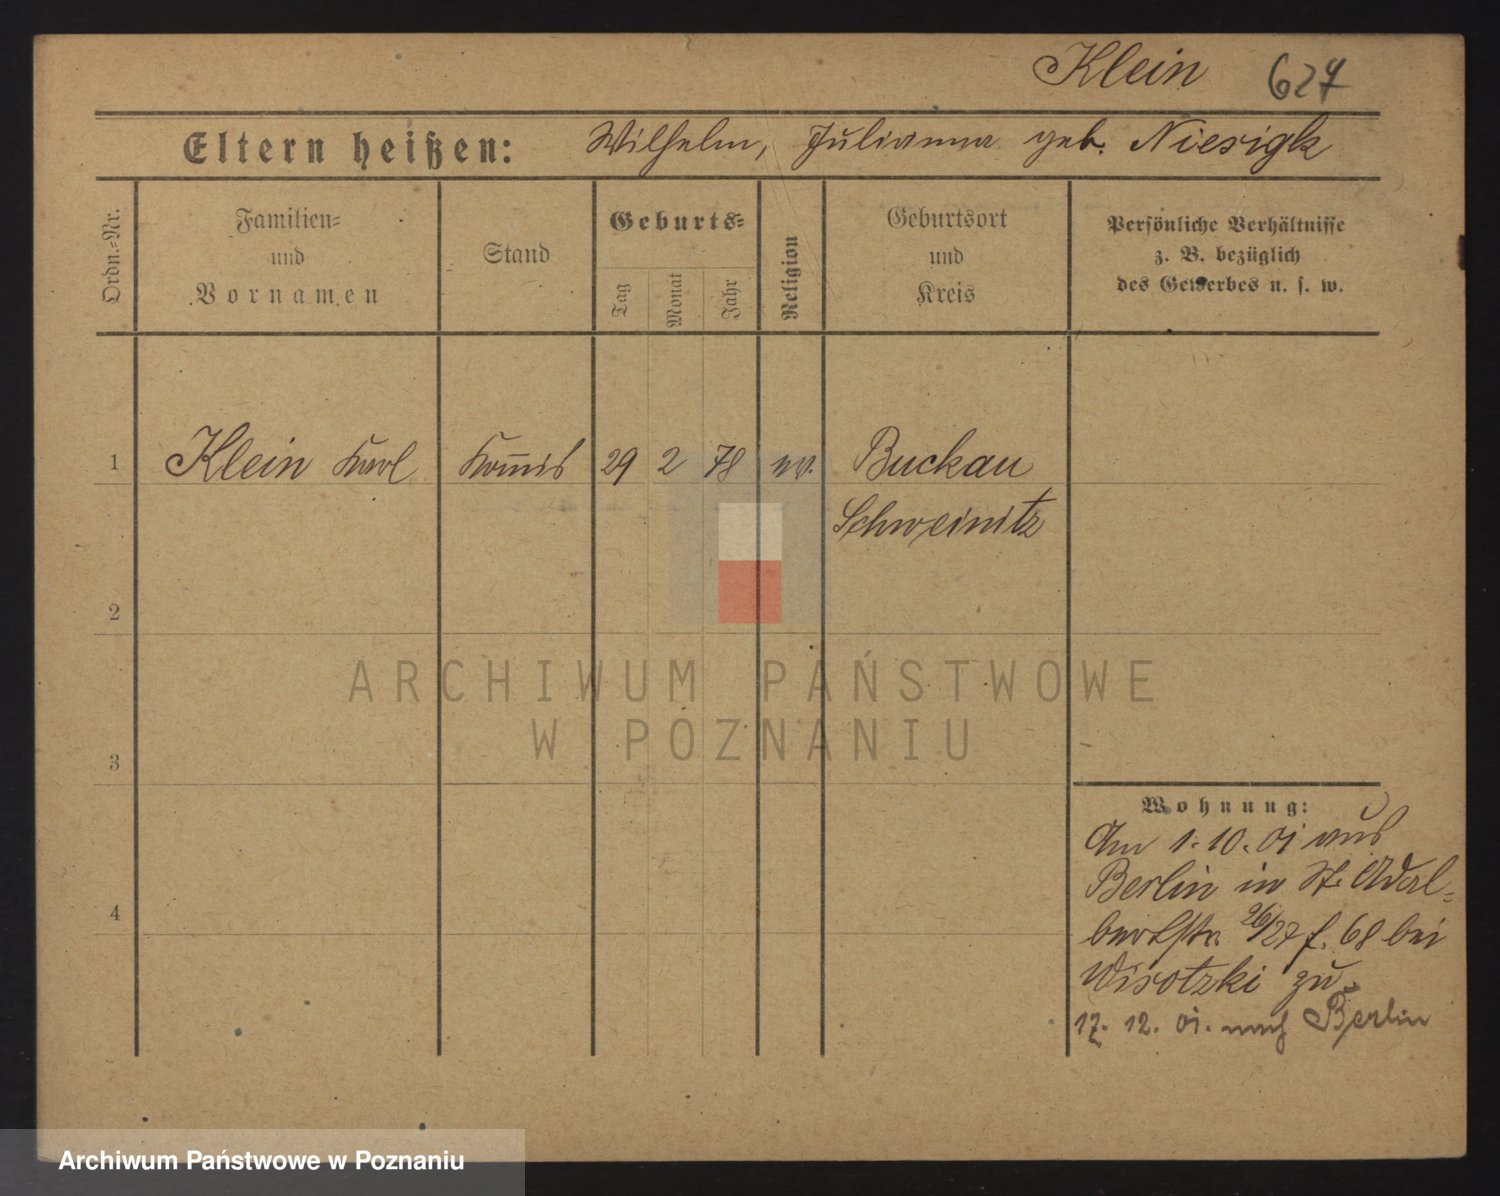 Klein 627
Eltern heißen: Wilhelm, Julianna geb. Niesigk
Ordn.=Nr.
Familien=
und
Vornamen
Stand
Geburts=
Tag
Monat
Jahr
Religion
Geburtsort
und
Kreis
Persönliche Verhältnisse
z. B. bezüglich
des Gewerbes u. s. w.
1 Klein Karl Kom̄is 29 2 78 ev. Buckau
Schweinitz
2
3
4
Wohnung:
Am 1. 10. 01 aus
Berlin in St. Adal=
bertstr. 26/27 f. 68 bei
Wisotzki zu
17. 12. 01. nach Berlin
ARCHIWUM PAŃSTWOWE
W POZNANIU
Archiwum Państwowe w Poznaniu